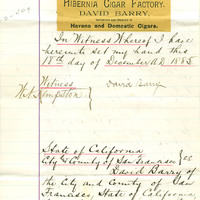 HIBERNIA CIGAR FACTORY.
DAVID BARRY,
Havana and Domestic Cigars.
In Witness Whereof I have
hereunto set my hand this
18th day of December A.D. 1885
Witness
David Barry
State of California
City & County of San Francisco } ss
David Barry of
the City and County of San
Francisco, State of California